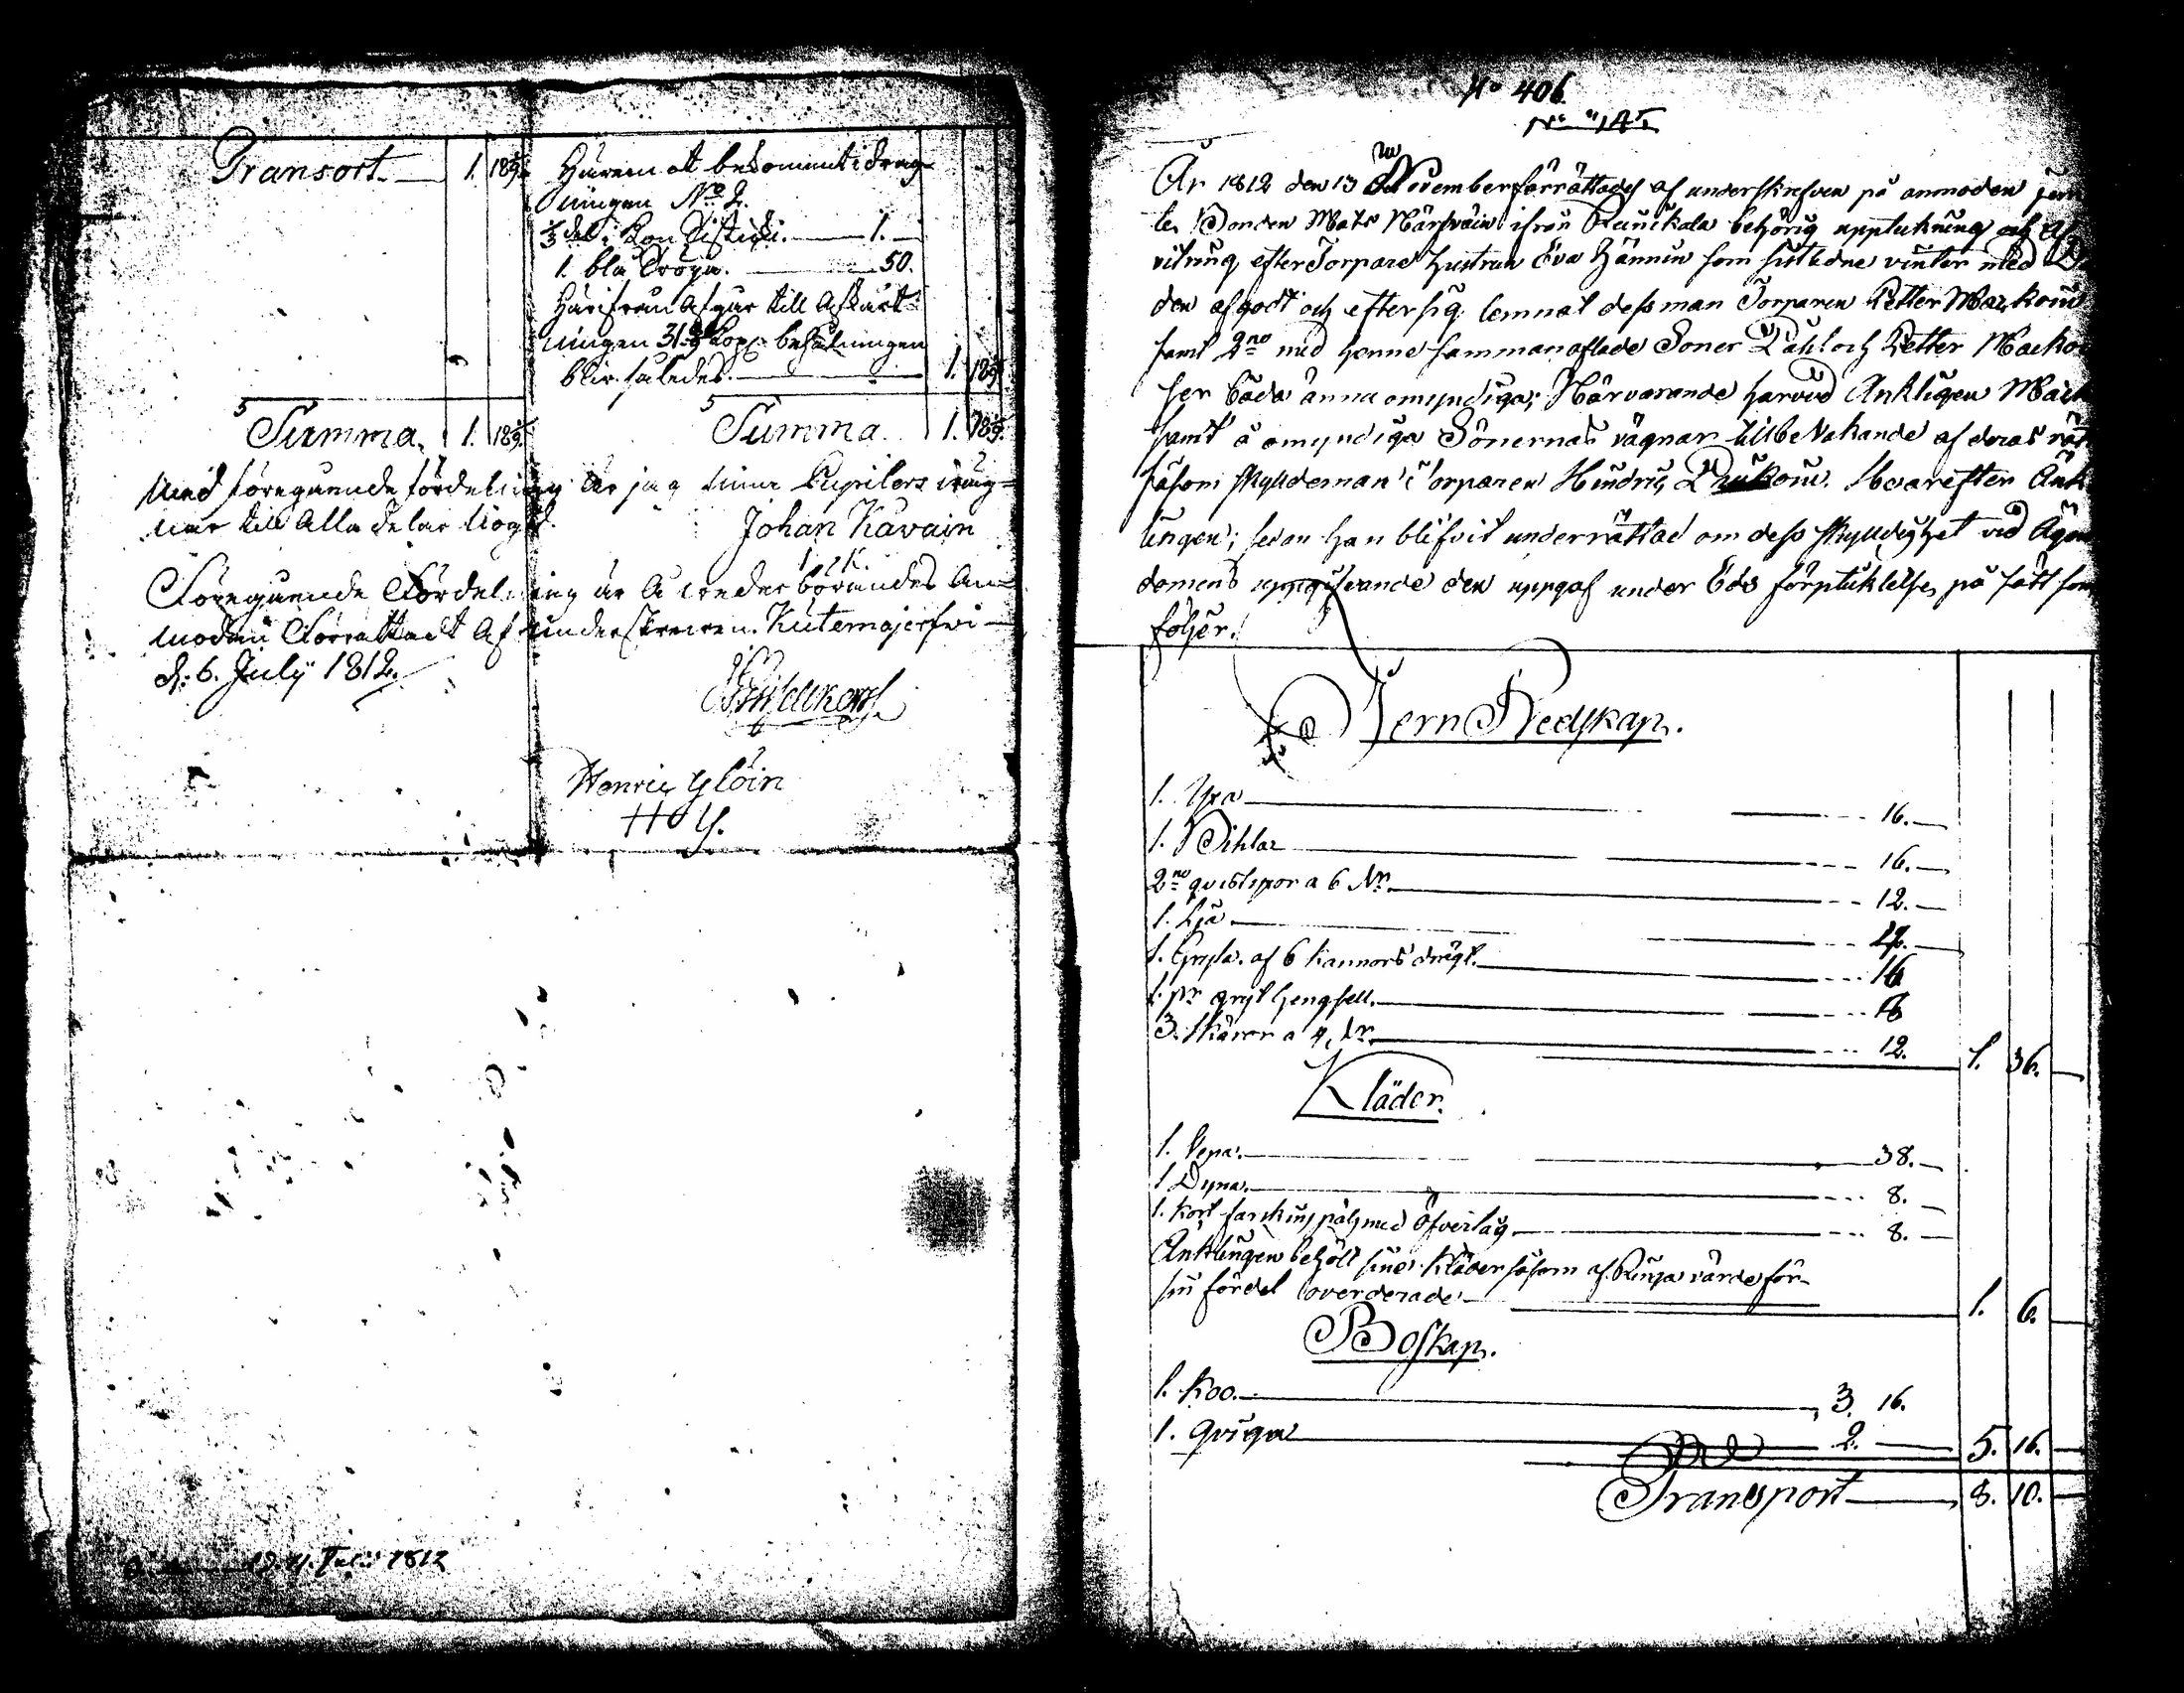 Transort 1. 18 5/9.
Häremot bekommit i drag-
ningen No 2.
1/3 del i Kon 1.
1. blå Tröga. 50.
Härifrån Afgår till Afkårt-
ningen Kop. behålningen
blir således. 1. 18 5/9
Summa. 1. 18 5/9.
Summa. 1. 18 5/9.
Med föregående fördelning är jag mina Pupilers väg-
nar till Alla delar Nögd.
Johan Kävain
I. K.
Föregående Fördelning är A wederbörandes An-
modan Förrättadt Af Underskrefven. Kutemajerfwi
d: 6. July 1812.
Henric Ylöin
H Y.
d. 4. Juli 1812
No 406
No 145
År 1812 den 13 November förrättades af underskrefven på anmodan
Bonden Mats Närfväin ifrån Runikala behörig uppteckning och Af
vitring efter Torpare hustrun Eva Hännin som sistledne vinter med
den afgått och efter sig lemnat dess man Torparen Petter Mackoin
samt 2no med henne sammanaflade Söner Påhl och Petter Macko
ser båda ännu omyndiga; Närvarande harvid Anklingen Mack
samt å omyndiga Sönernas vägnar till bevakande af deras rätt
såsom skyldeman Torparen Hindric. Hvarefter Änk
lingen; sedan han blifvit underrättad om dess skyldighet vid Ägen
domens uppgifvande den uppgaf under Eds förpliktelse, på sätt som
följer.
Jern Redskap.
1. Yxa 16.
1. Bihlar 16.
2no qvistyxor a 6 Nr. 12.
1. Lja
1. Gryta. af 6 kannors drägt. 16
1. pr gryt hengsell. 16
3. Skäror a 4, Nr. 12. 1. 36.
Kläder.
1. Vepa. 38.
1 Dyna. 8.
1. kort farskins päls med Öfverlag 8.
Anklingen behölt sine Kläder såsom af Ringa värde för
sin fördel overderade 1. 6.
Boskap.
1. Koo. 3. 16.
1. Qviga 2. 5. 16.
Transport 8. 10.